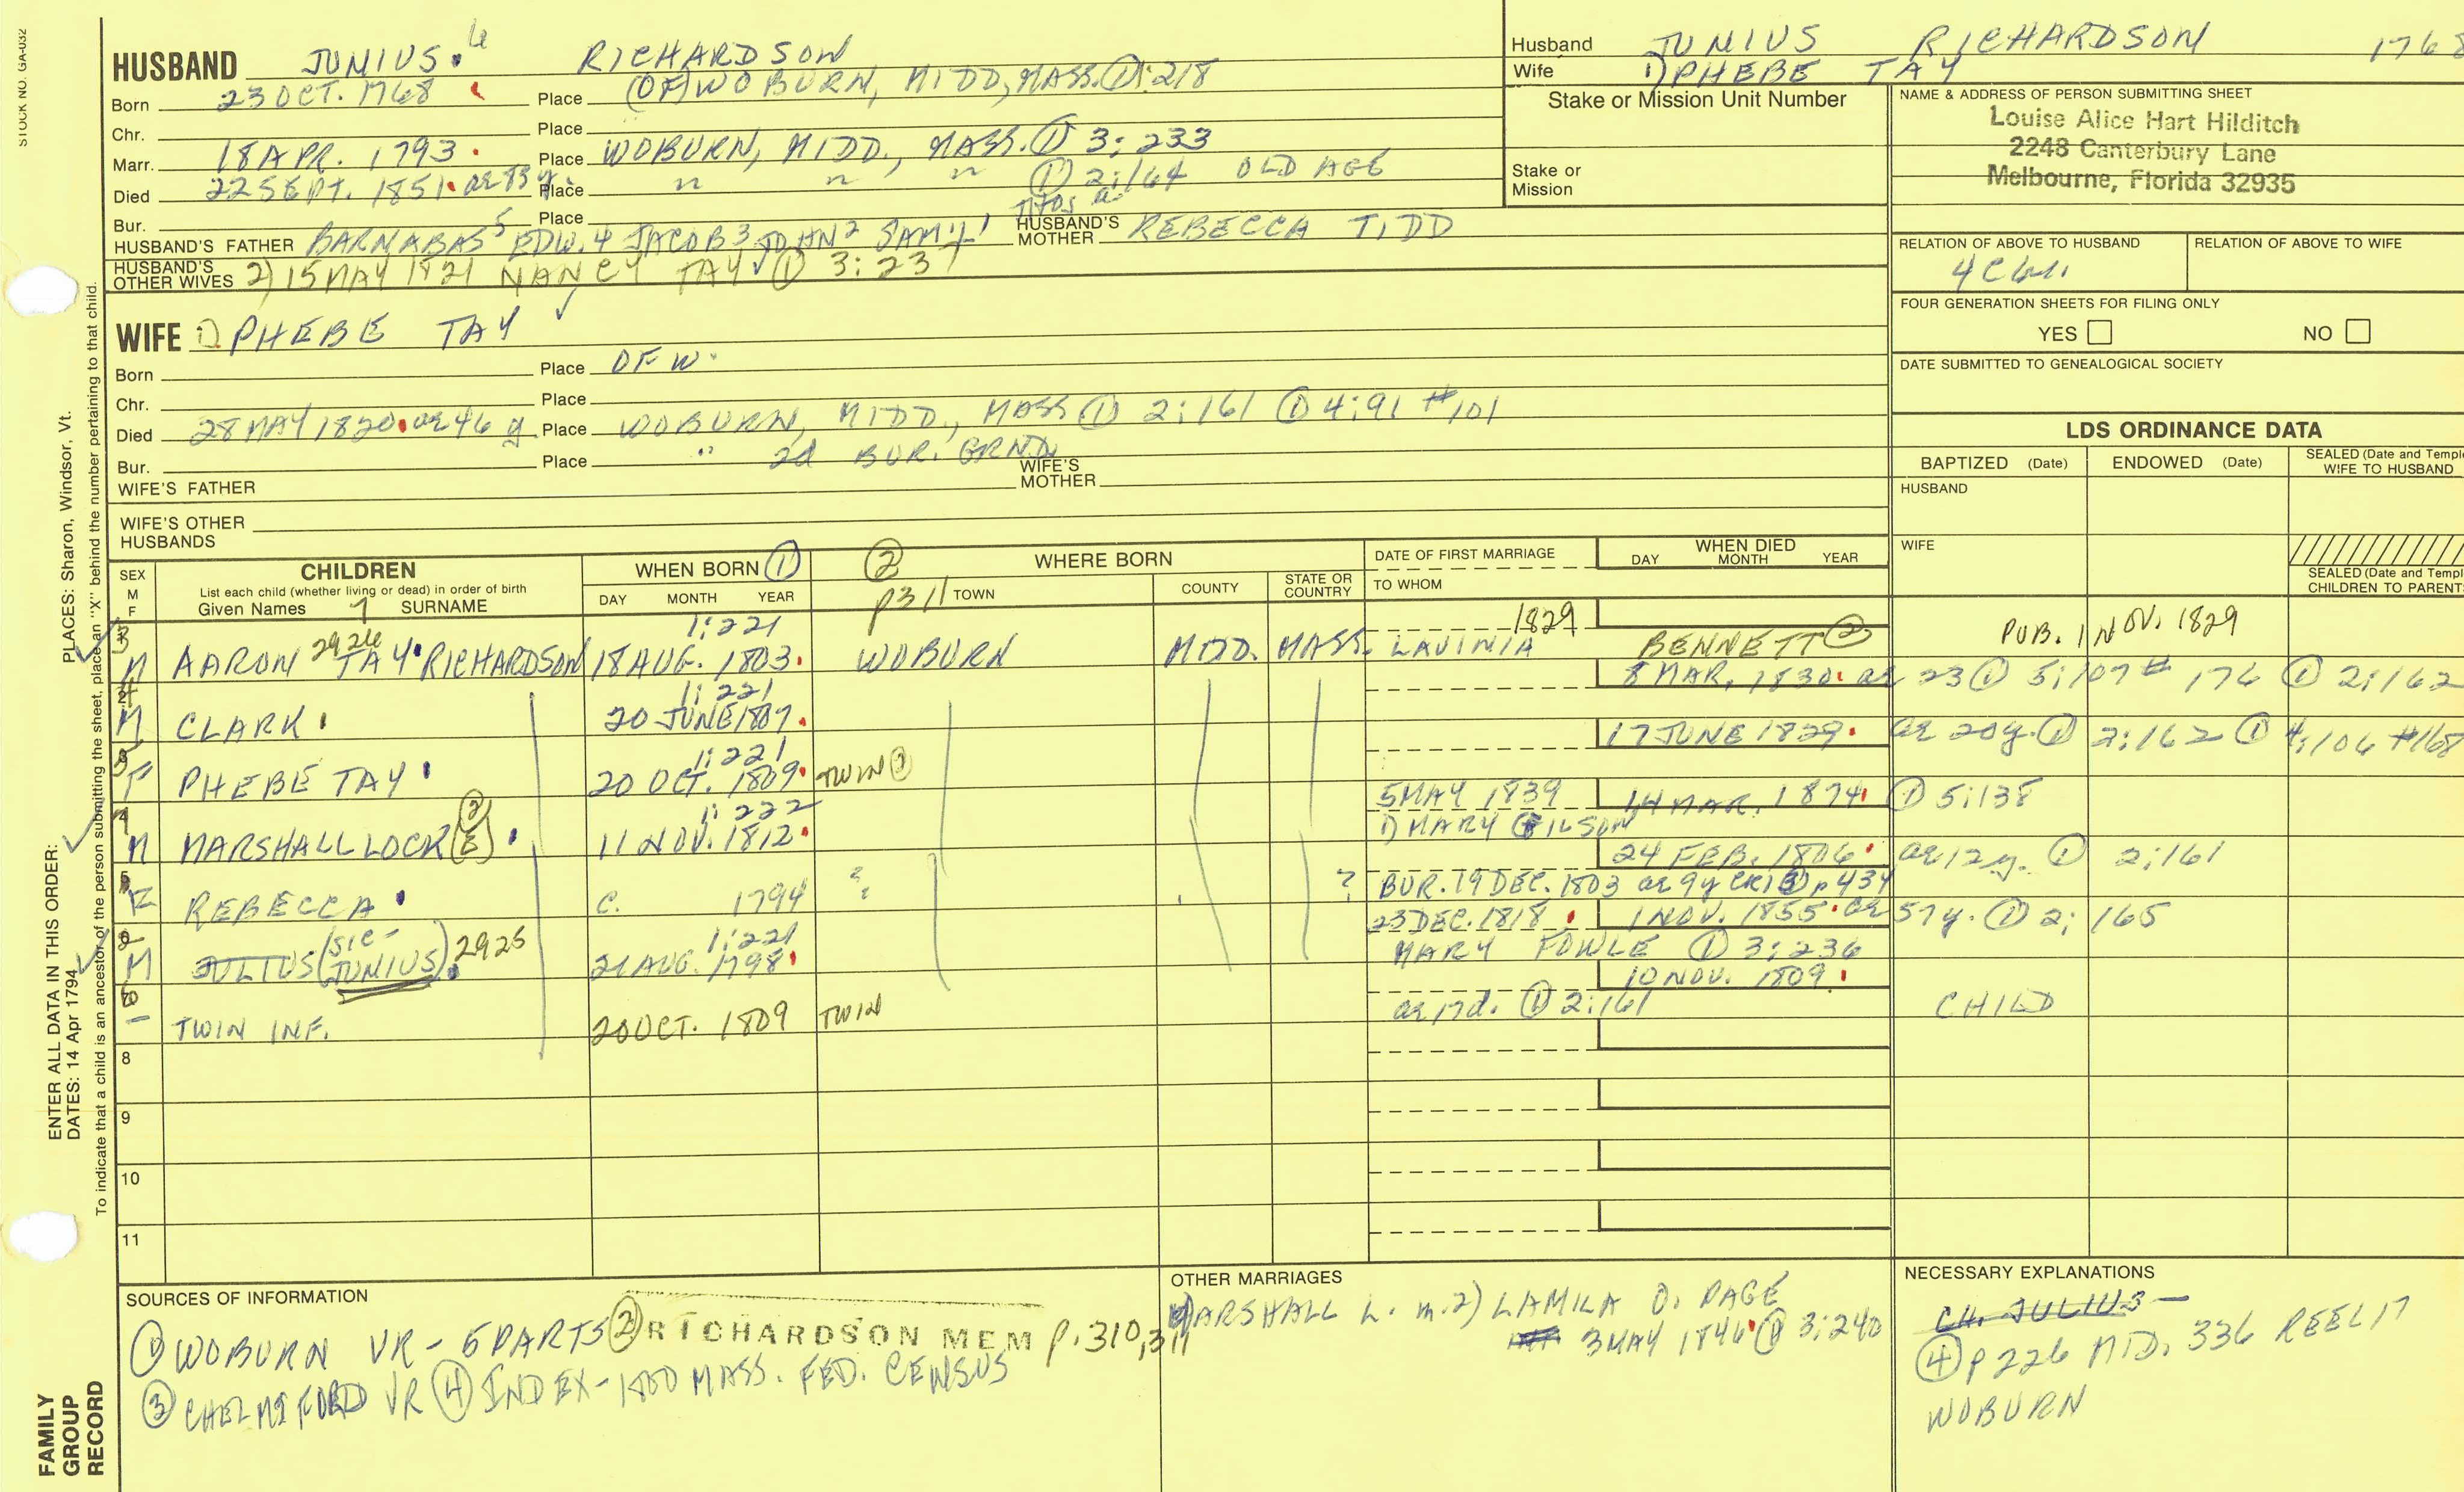 STOCK NO. GA-032
HUSBAND JUNIUS. 6 RICHARDSON
Born 23 OCT. 1768 Place (OF) WOBURN, MIDD, MASS. ① 1:218
Chr. Place
Marr. 18 APR. 1793. Place WOBURN, MIDD., MASS. ① 3:233
Died 22 SEPT. 1851. ae 83 y. Place " " " ① 2:164 OLD AGE
Bur. Place
HUSBAND'S FATHER BARNABAS 5 EDW. 4 JACOB 3 JOHN 2 SAM'L 1 HUSBAND'S MOTHER REBECCA TIDD
HUSBAND'S OTHER WIVES 2) 15 MAY 1821 NANCY TAY ① 3:237
WIFE 1) PHEBE TAY
Born Place OF W.
Chr. Place
Died 28 MAY 1820. ae 46 y. Place WOBURN, MIDD., MASS ① 2:161 ① 4:91 #101
Bur. Place " 2d BUR. GRND
WIFE'S FATHER WIFE'S MOTHER
WIFE'S OTHER HUSBANDS
Husband JUNIUS RICHARDSON 1768
Wife 1) PHEBE TAY
Stake or Mission Unit Number
Stake or Mission
NAME & ADDRESS OF PERSON SUBMITTING SHEET
Louise Alice Hart Hilditch
2248 Canterbury Lane
Melbourne, Florida 32935
RELATION OF ABOVE TO HUSBAND RELATION OF ABOVE TO WIFE
FOUR GENERATION SHEETS FOR FILING ONLY
YES NO
DATE SUBMITTED TO GENEALOGICAL SOCIETY
LDS ORDINANCE DATA
BAPTIZED (Date) ENDOWED (Date) SEALED (Date and Temple) WIFE TO HUSBAND
HUSBAND
WIFE
SEALED (Date and Temple) CHILDREN TO PARENTS
SEX M F
CHILDREN
List each child (whether living or dead) in order of birth
Given Names 7 SURNAME
WHEN BORN ①
DAY MONTH YEAR
② p 311
WHERE BORN
TOWN COUNTY STATE OR COUNTRY
DATE OF FIRST MARRIAGE
TO WHOM
WHEN DIED
DAY MONTH YEAR
2926 1:221 1829 PUB. 1 NOV. 1829
M AARON TAY RICHARDSON 18 AUG. 1803. WOBURN MIDD. MASS. LAVINIA BENNETT ②
1:221 8 MAR. 1830. ae 23 ① 5:107 # 176 ① 2:162
M CLARK. 20 JUNE 1807.
1:221 17 JUNE 1829. ae 20y. ① 2:162 ① 4:106 #168
F PHEBE TAY. 20 OCT. 1809. TWIN ②
1:222 5 MAY 1839 14 MAR. 1874. ① 5:138
M MARSHALL LOCK(E) ②. 11 NOV. 1812. 1) MARY GILSON
24 FEB. 1806. ae 12 y. ① 2:161
F REBECCA. C. 1794 ? ? BUR. 19 DEC. 1803 ae 9y CR1 ③ p 434
1:221 23 DEC. 1818. 1 NOV. 1855. ae 57y. ① 2:165
M JULIUS (sic- JUNIUS). 2925 21 AUG. 1798. MARY FOWLE ① 3:236
10 NOV. 1809.
- TWIN INF. 20 OCT. 1809 TWIN ae 17d. ① 2:161 CHILD
8
9
10
11
SOURCES OF INFORMATION
① WOBURN VR - 5 PARTS ② RICHARDSON MEM p. 310, 311
③ CHELMSFORD VR ④ INDEX - 1800 MASS. FED. CENSUS
OTHER MARRIAGES
MARSHALL L. m. 2) LAMILA O. PAGE
3 MAY 1846 ① 3:240
NECESSARY EXPLANATIONS
CH. JULIUS -
④ p 226 MID. 336 REEL 17
WOBURN
ENTER ALL DATA IN THIS ORDER:
DATES: 14 Apr 1794
PLACES: Sharon, Windsor, Vt.
To indicate that a child is an ancestor of the person submitting the sheet, place an "X" behind the number pertaining to that child.
FAMILY
GROUP
RECORD